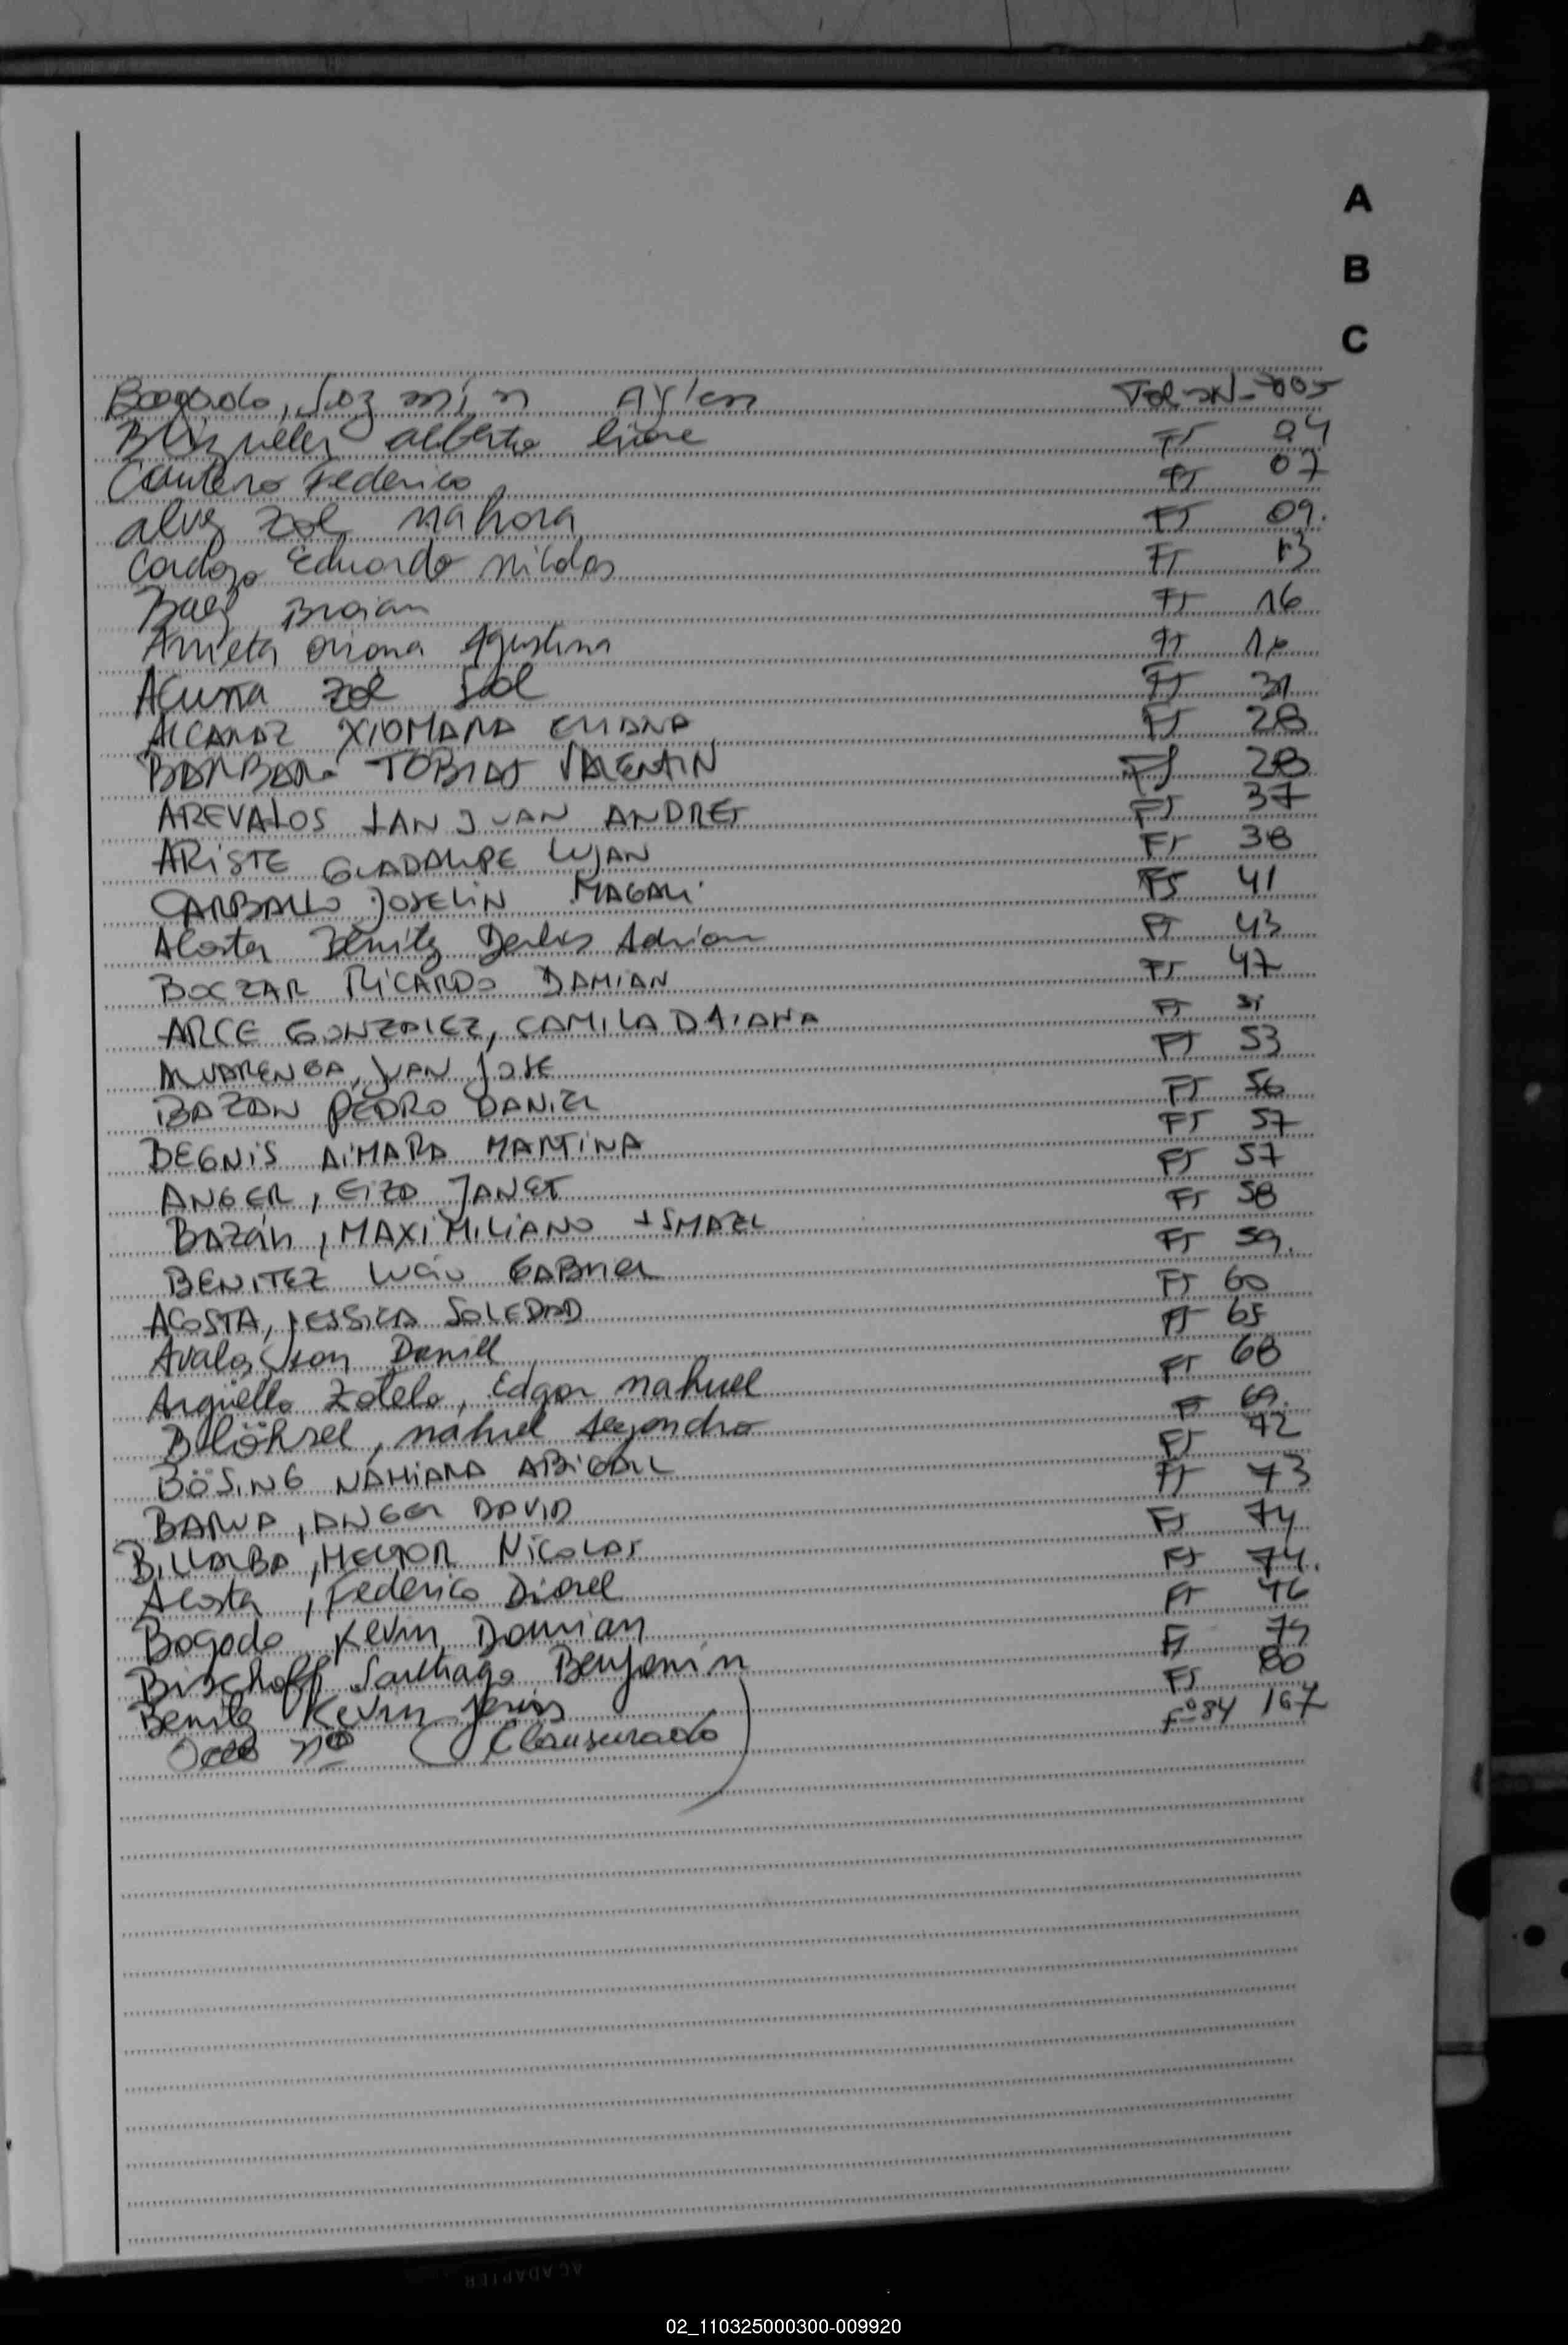 A
B
C
Bogado, Jazmín Aylen
alberto
Cantero Federico Fs 07
alvez Zoe nahora Fs 09.
Cardozo Eduardo Nicolas Fs 13
Baez Braian Fs 16
Arrieta oriana Agustina Fs
Acuña Zoe Sol Fs 31
ALCARAZ XIOMARA ELIANA Fs 28
BARBARÁ TOBIAS VALENTIN Fs 28
AREVALOS IAN JUAN ANDRES Fs 37
ARISTE GUADALUPE LUJAN Fs 38
CARBALLO JOSELIN MAGALI Fs 41
Acosta Benitez Adrian Fs 43
BOCZAR RICARDO DAMIAN Fs 47
ARCE GONZALEZ, CAMILA DAIANA Fs 51
ALVARENGA, JUAN JOSE Fs 53
BAZAN PEDRO DANIEL Fs 56
BEGNIS AIMARA MARTINA Fs 57
ANGER, JANET Fs 57
BAZÁN, MAXIMILIANO ISMAEL Fs 58
BENITEZ GABRIEL Fs 59.
ACOSTA, JESSICA SOLEDAD Fs 60
Avalos Daniel Fs 65
Argüello Zotelo, Edgar nahuel Fs 68
nahuel Fs 69.
BÖSING NAHIARA ABIGAIL Fs 72
DAVID Fs 73
BILLALBA, HECTOR NICOLAS Fs 74
Acosta, Federico Fs 74.
Bogado Kevin Damian Fs 76
Bischoff Santiago Benjamin Fs 79
Benitez Kevin Jesus Fs 80
nº (Clausurado) Fº 84 167
02_110325000300-009920